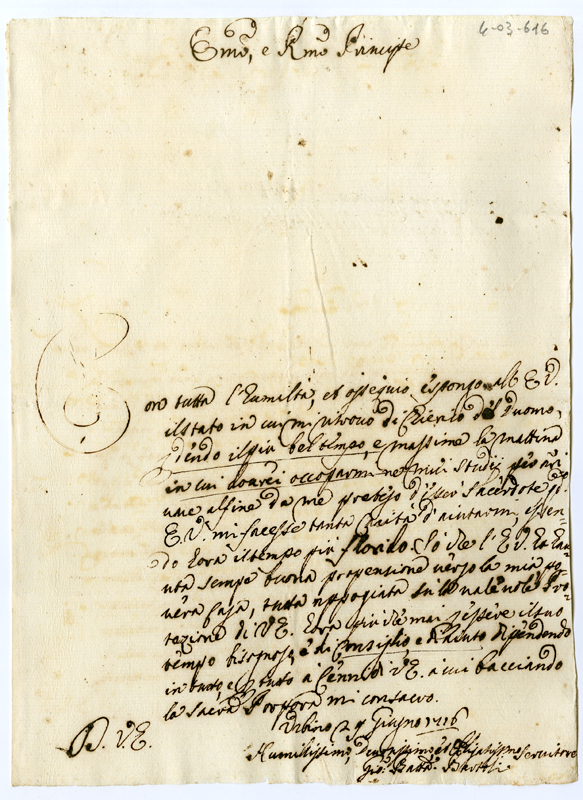 4-03-616
Emo, e Rmo Principe
Con tutta l'humiltà, et ossequio espongo all' E V.
il stato in cui mi ritrovo di Chierico del Duomo,
il più bel tempo, e massime la mattina
in cui dovrei occuparmi ne miei studij per
al fine da me preteso d'esser sacerdote
E V. mi facesse tanta Carità d'aiutarmi, essen-
do hora il tempo più florido. Sò che l'E. V. hà hau-
uta sempre buona propensione verso la mia po-
uera Casa, tutta appoggiata sù la Pro-
tezione di V E. hora più che mai il suo
tempo bisognoso, è di Consiglio, e d'aiuto dipendendo
in tutto e per tutto à Cenni di V E. à cui bacciando
la Sacra Porpora mi consacro.
Urbino 29 Giugno 1716
D. V. E.
Humilissimo, Devotissimo et Obligatissimo Servitore
Gio: Batta Bartoli